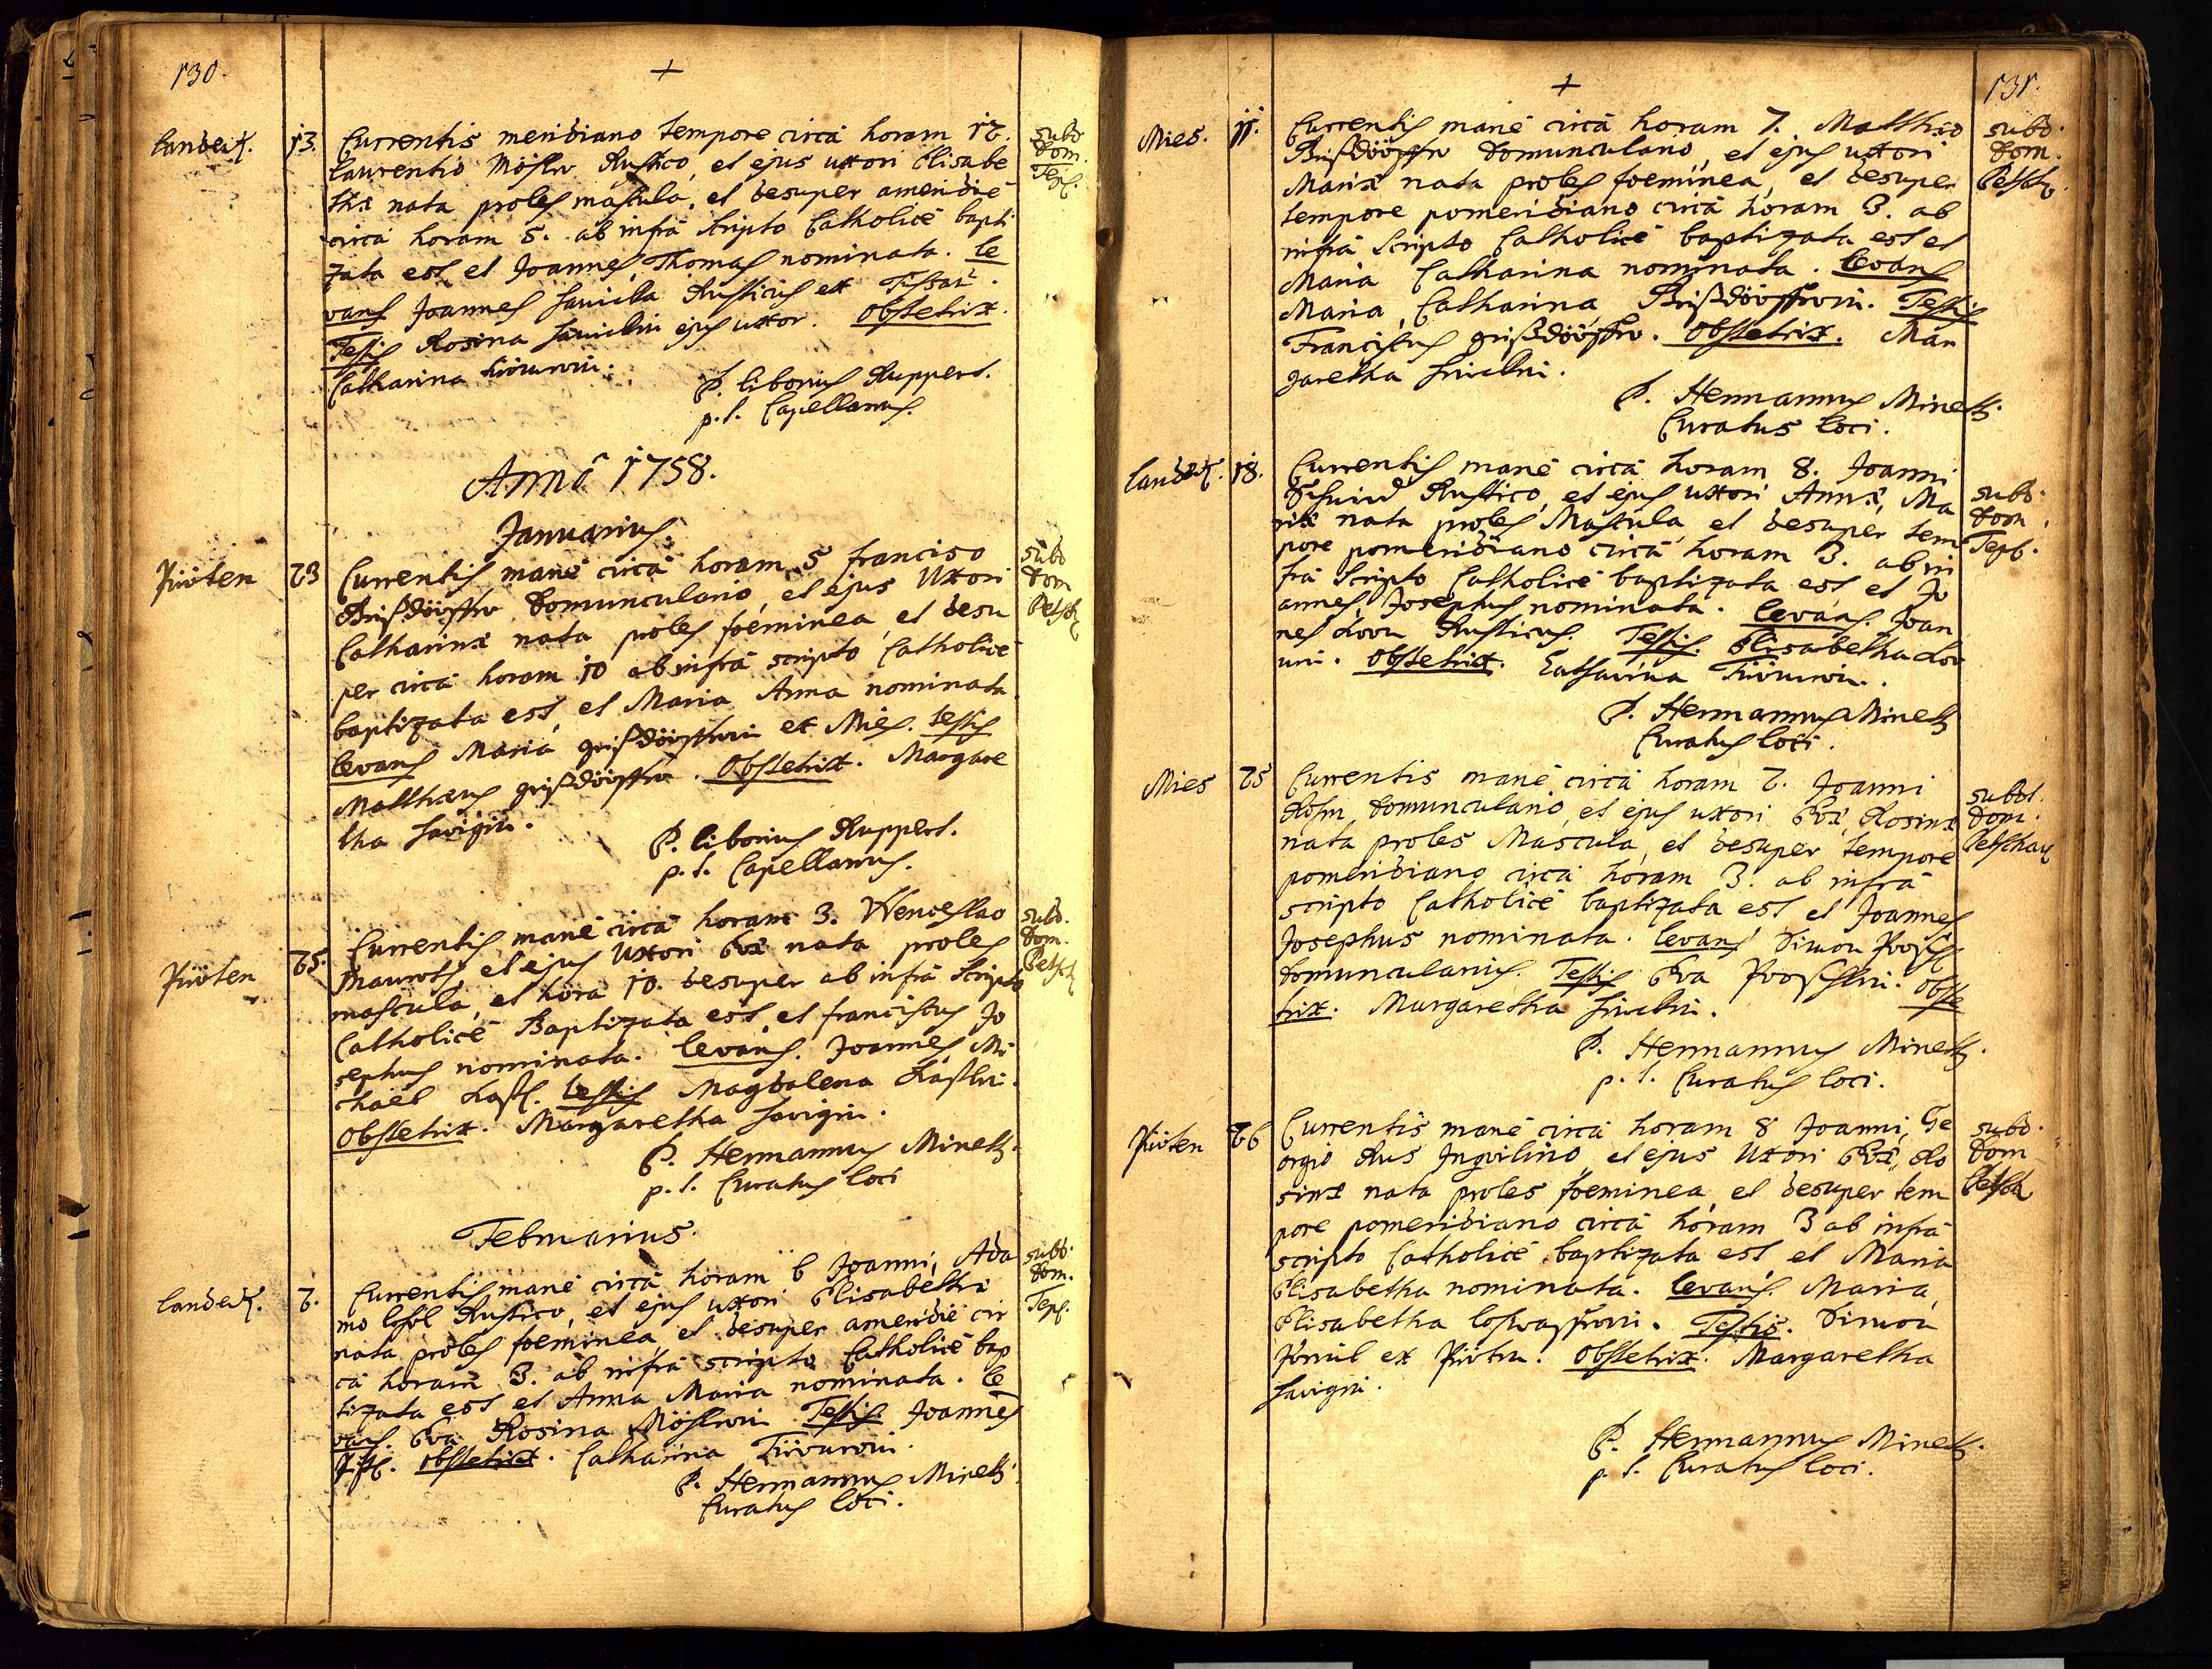 130.
+
Landeck.
13.
Currentis meridiano tempore circà horam 12.
Laurentio Mösler Rustico, et ejus uxori Elisabe
thæ nata proles mascula, et desuper ameridiè
circà horam 5. ab infrà scripto Catholicè bapti
zata est et Joannes, Thomas nominata. Le
vans Joannes Rusticus ex
Testis Rosina ejus uxor. Obstetrix.
Catharina
P. Liborius Ruppert.
p. t. Capellanus.
subd
Dom.
Tepl.
Annô 1758.
Januarius.
23
Currentis manè circà horam 5 francisco
Grißdörffer Domunculario, et ejus Uxori
Catharinæ nata proles foeminea, et desu
per circà horam 10 ab infrà scripto Catholicè
baptizata est, et Maria Anna nominata
Levans Maria grißdörfferin ex Mies. testis
Matthæus grißdörffer. Obstetrix. Margare
tha
P. Liborius Ruppert.
p. t. Capellanus.
subd
Dom
Petsch
25.
Currentis manè circà horam 3. Wenceslao
et ejus Uxori Evæ nata proles
mascula, et hora 10. desuper ab infrà scripto
Catholicè Baptizata est, et franciscus Jo
sephus nominata. Levans. Joannes Mi
chaël testis Magdalena
Obstetrix. Margaretha
P. Hermannus Minetti.
p. t. Curatus loci
subd.
Dom.
Petsch
Februarius.
Landeck.
2.
Currentis manè circà horam 6 Joanni, Ada
mo Rustico, et ejus uxori Elisabethæ
nata proles foeminea, et desuper ameridiè cir
cà horam 3. ab infrà scripto Catholicè bap
tizata est et Anna Maria nominata. Le
vans. Eva Rosina Möslerin Testis. Joannes
Obstetrix. Catharina
P. Hermannus Minetti
Curatus loci.
subd.
Dom.
Tepl.
131.
+
Mies.
11.
Currentis manè circà horam 7. Matthæo
Grißdörffer Domunculario, et ejus uxori
Mariæ nata proles foeminea, et desuper
tempore pomeridiano circà horam 3. ab
infrà scripto Catholicè baptizata est et
Maria Catharina nominata. Levans
Maria, Catharina, Grißdörfferin. Testis
Franciscus grißdörffer. Obstetrix. Mar
garetha
P. Hermannus Minetti.
Curatus loci.
subd.
Dom.
Petsch.
Landeck.
18.
Currentis manè circà horam 8. Joanni
Rustico, et ejus uxori Annæ, Ma
riæ nata proles Mascula, et desuper tem
pore pomeridiano circà horam 3. ab in
frà scripto Catholicè baptizata est et Jo
annes, Josephus nominata. Levans. Joan
nes Rusticus. Testis. Elisabetha
Obstetrix. Catharina
P. Hermannus Minetti
Curatus loci.
subd.
Dom.
Tepl.
Mies
25
Currentis manè circà horam 2. Joanni
Domunculario, et ejus uxori Evæ, Rosinæ
nata proles Mascula, et desuper tempore
pomeridiano circà horam 3. ab infrà
scripto Catholicè baptizata est et Joannes
Josephus nominata. Levans Simon
Domuncularius. Testis Eva Obste
trix. Margaretha
P. Hermannus Minetti.
p. t. Curatus loci.
subd.
Dom.
Petschau
26
Currentis manè circà horam 8 Joanni, Ge
orgio Inquilino, et ejus Uxori Evæ, Ro
sinæ nata proles foeminea, et desuper tem
pore pomeridiano circà horam 3 ab infrà
scripto Catholicè baptizata est et Maria
Elisabetha nominata. Levans. Maria,
Elisabetha Testis. Simon
ex Obstetrix. Margaretha
P. Hermannus Minetti.
p. t. Curatus loci.
subd.
Dom
Petsch